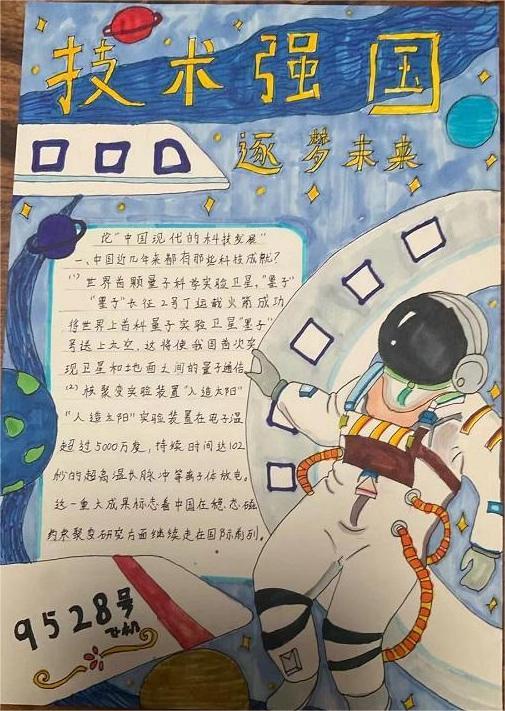 技术强国
逐梦未来
论"中国现代的科技发展"
一、中国近几年来都有那些科技成就?
(1)世界首颗量子科学实验卫星,"墨子"
"墨子"长征2号丁运载火箭成功
将世界上首科量子实验卫星"墨子"
号送上太空,这将使我国首次实
现卫星和地面之间的量子通信
(2)核聚变实验装置"人造太阳"
"人造太阳"实验装置在电子温
超过5000万度,持续时间达102
秒的超高温长脉冲等离子体放电。
这一重大成果标志着中国在稳态磁
约束聚变研究方面继续走在国际前列。
9528号
飞机